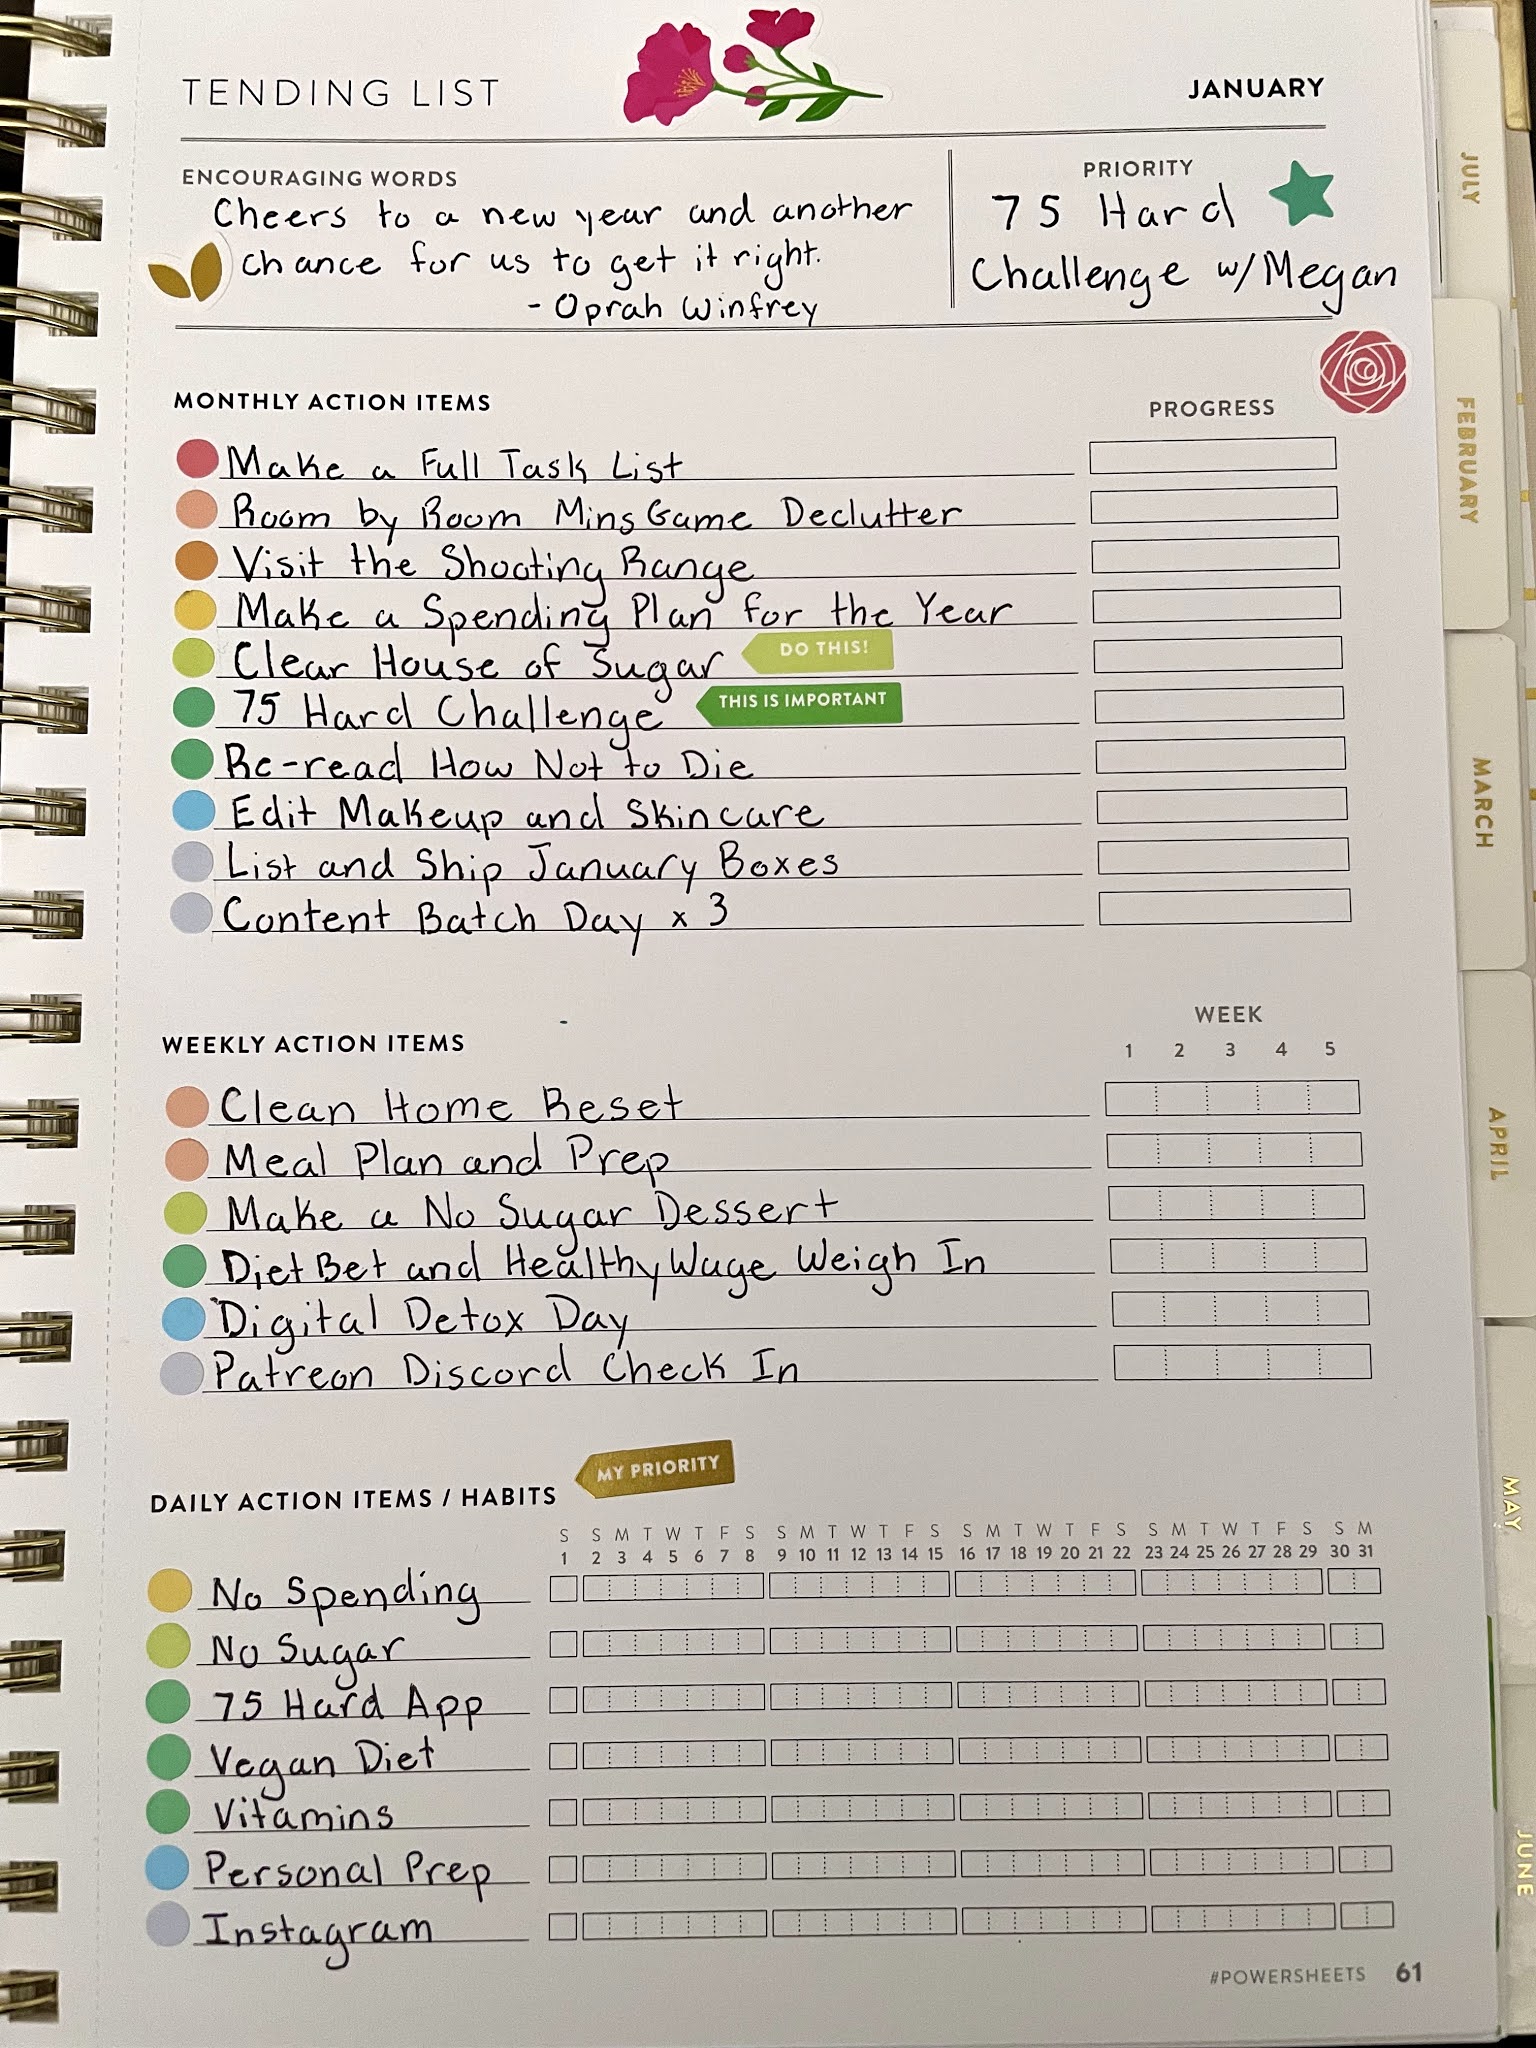 TENDING LIST
JANUARY
ENCOURAGING WORDS
Cheers to a new year and another
chance for us to get it right.
- Oprah Winfrey
PRIORITY
75 Hard
Challenge w/Megan
MONTHLY ACTION ITEMS
PROGRESS
Make a Full Task List
Room by Room Mins Game Declutter
Visit the Shooting Range
Make a Spending Plan for the Year
Clear House of Sugar
DO THIS!
75 Hard Challenge
THIS IS IMPORTANT
Re-read How Not to Die
Edit Makeup and Skincare
List and Ship January Boxes
Content Batch Day x 3
WEEKLY ACTION ITEMS
WEEK
1 2 3 4 5
Clean Home Reset
Meal Plan and Prep
Make a No Sugar Dessert
DietBet and HealthyWage Weigh In
Digital Detox Day
Patreon Discord Check In
DAILY ACTION ITEMS / HABITS
MY PRIORITY
S S M T W T F S S M T W T F S S M T W T F S S M T W T F S S M
1 2 3 4 5 6 7 8 9 10 11 12 13 14 15 16 17 18 19 20 21 22 23 24 25 26 27 28 29 30 31
No Spending
No Sugar
75 Hard App
Vegan Diet
Vitamins
Personal Prep
Instagram
#POWERSHEETS 61
JULY
FEBRUARY
MARCH
APRIL
MAY
JUNE